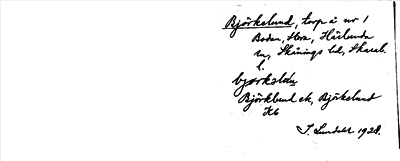 Björkelund, torp å nr 1
Boden, Stora, Härlunda
sn, Skånings hd, Skarab.
l.
Björklund ek, Björkelund
Kb
J. Lundahl 1928.